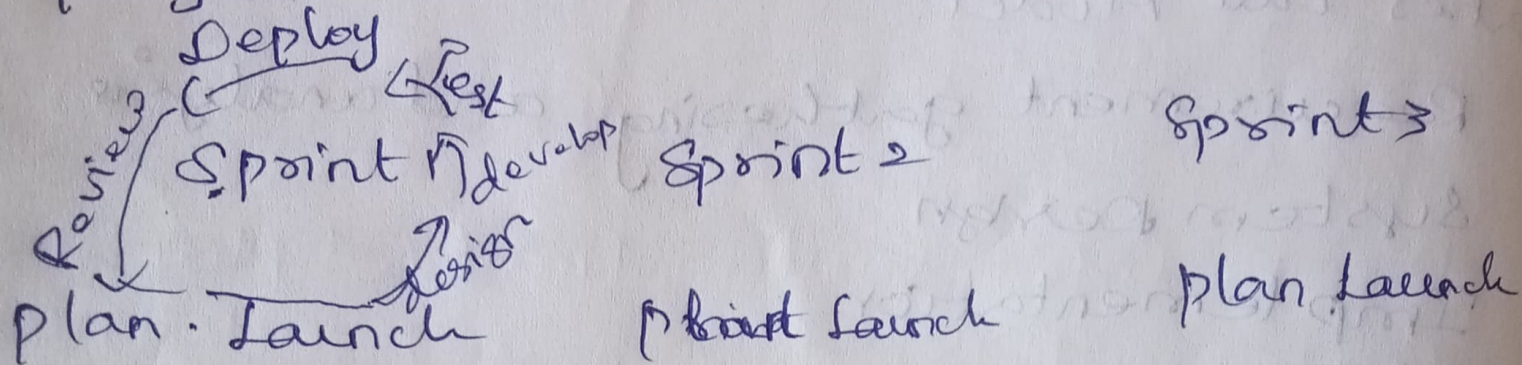 Deploy
Test
Review
Sprint 1 develop Sprint 2 Sprint 3
design
plan. Launch Launch plan Launch